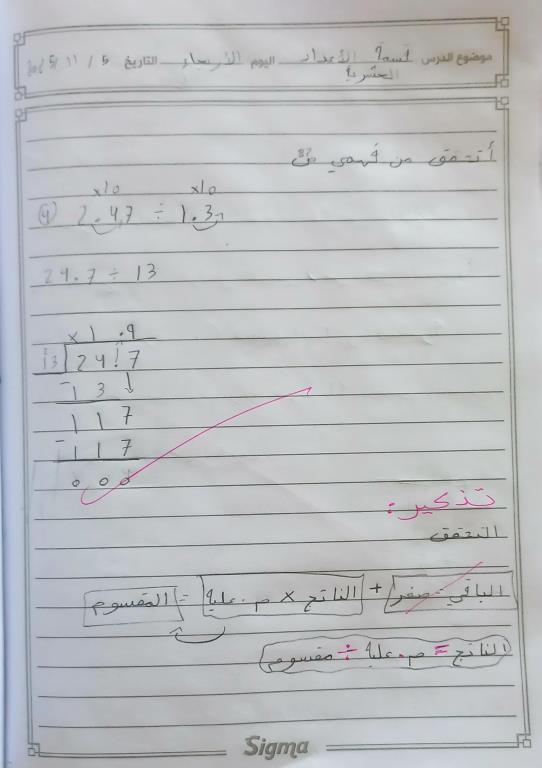 موضوع الدرس قسمة الأعداد العشرية اليوم الأربعاء التاريخ 5 / 11 / 2025
أتحقق من فهمي ص
×10 ×10
4) 2.47 ÷ 1.3
24.7 ÷ 13
× 1 .9
13 24.7
- 1 3
1 1 7
- 1 1 7
0 0 0
تذكير:
التحقق
الباقي = صفر + الناتج × م. عليه = المقسوم
الناتج = م. عليه ÷ مقسوم
Sigma